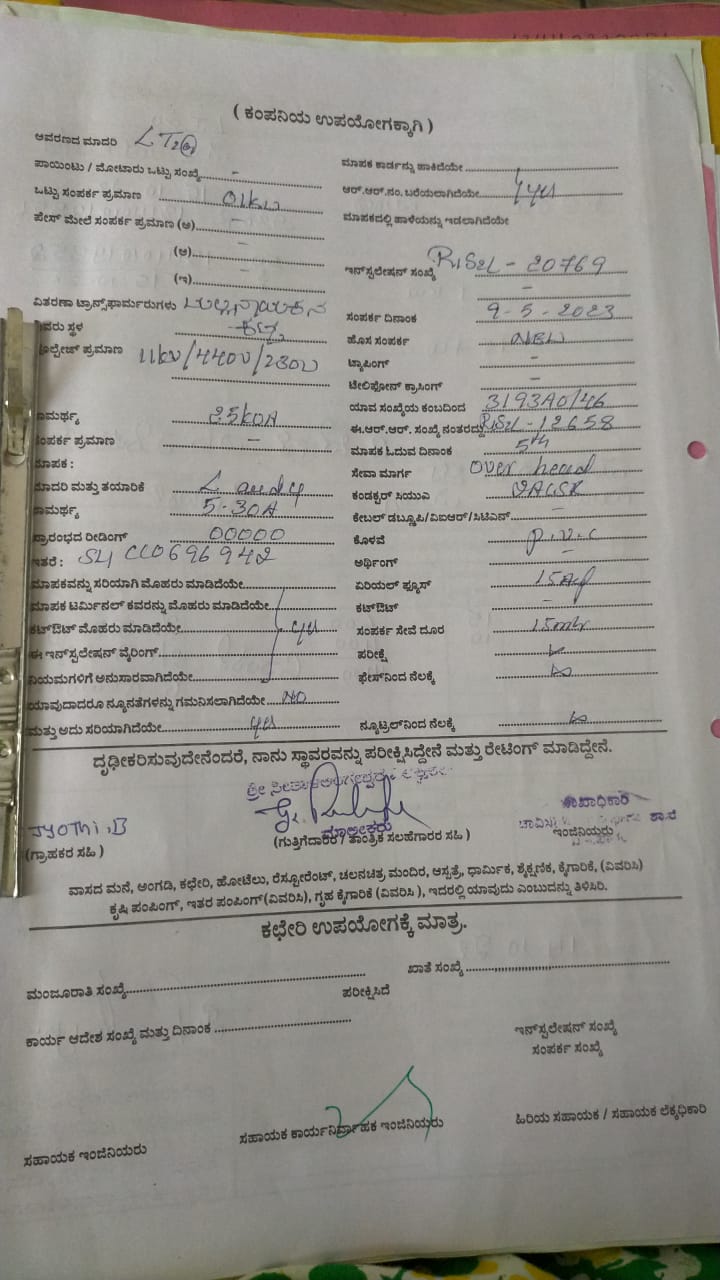 ( ಕಂಪನಿಯ ಉಪಯೋಗಕ್ಕಾಗಿ )
ಆವರಣದ ಮಾದರಿ LT2
ಪಾಯಿಂಟು / ಮೋಟಾರು ಒಟ್ಟು ಸಂಖ್ಯೆ - ಮಾಪಕ ಕಾರ್ಡನ್ನು ಹಾಕಿದೆಯೇ
ಒಟ್ಟು ಸಂಪರ್ಕ ಪ್ರಮಾಣ 01kw ಆರ್.ಆರ್.ನಂ. ಬರೆಯಲಾಗಿದೆಯೇ yes
ಪೇಸ್ ಮೇಲೆ ಸಂಪರ್ಕ ಪ್ರಮಾಣ (ಅ) - ಮಾಪಕದಲ್ಲಿ ಹಾಳೆಯನ್ನು ಇಡಲಾಗಿದೆಯೇ
(ಆ) -
(ಇ) - ಇನ್‌ಸ್ಟಲೇಷನ್ ಸಂಖ್ಯೆ RJS2L - 20769
ವಿತರಣಾ ಟ್ರಾನ್ಸ್‌ಫಾರ್ಮರುಗಳು -
ಸ್ಥಳ ಸಂಪರ್ಕ ದಿನಾಂಕ 9-5-2023
ಪ್ರಮಾಣ 11kv/440v/230v ಹೊಸ ಸಂಪರ್ಕ NEW
ಟ್ಯಾಪಿಂಗ್ -
ಟೆಲಿಫೋನ್ ಕ್ರಾಸಿಂಗ್ -
25KVA ಯಾವ ಸಂಖ್ಯೆಯ ಕಂಬದಿಂದ 3193A0/46
ಪ್ರಮಾಣ - ಈ.ಆರ್.ಆರ್. ಸಂಖ್ಯೆ ನಂತರದ್ದು RJS2L - 12658
ಮಾಪಕ ಓದುವ ದಿನಾಂಕ 5th
ಸೇವಾ ಮಾರ್ಗ Over head
ಮತ್ತು ತಯಾರಿಕೆ L and y ಕಂಡಕ್ಟರ್ ಸಿಯುಎ
5-30A ಕೇಬಲ್ ಡಬ್ಲೂಪಿ/ವಿಐಆರ್/ಸಿಟಿಎನ್ -
ರೀಡಿಂಗ್ 00000 ಕೊಳವೆ p.v.c
ಅರ್ಥಿಂಗ್ -
ಮಾಪಕವನ್ನು ಸರಿಯಾಗಿ ಮೊಹರು ಮಾಡಿದೆಯೇ ಏರಿಯಲ್ ಫ್ಯೂಸ್
ಮಾಪಕ ಟರ್ಮಿನಲ್ ಕವರನ್ನು ಮೊಹರು ಮಾಡಿದೆಯೇ ಕಟ್‌ಔಟ್ -
ಕಟ್‌ಔಟ್ ಮೊಹರು ಮಾಡಿದೆಯೇ yes ಸಂಪರ್ಕ ಸೇವೆ ದೂರ 15mtr
ಈ ಇನ್‌ಸ್ಟಲೇಷನ್ ವೈರಿಂಗ್ ಪರೀಕ್ಷೆ
ನಿಯಮಗಳಿಗೆ ಅನುಸಾರವಾಗಿದೆಯೇ ಫೇಸ್‌ನಿಂದ ನೆಲಕ್ಕೆ
ಯಾವುದಾದರೂ ನ್ಯೂನತೆಗಳನ್ನು ಗಮನಿಸಲಾಗಿದೆಯೇ NO
ಮತ್ತು ಅದು ಸರಿಯಾಗಿದೆಯೇ yes ನ್ಯೂಟ್ರಲ್‌ನಿಂದ ನೆಲಕ್ಕೆ
ದೃಢೀಕರಿಸುವುದೇನೆಂದರೆ, ನಾನು ಸ್ಥಾವರವನ್ನು ಪರೀಕ್ಷಿಸಿದ್ದೇನೆ ಮತ್ತು ರೇಟಿಂಗ್ ಮಾಡಿದ್ದೇನೆ.
JYOTHI.B ಮಾಲೀಕರು ಶಾಖಾಧಿಕಾರಿ
(ಗ್ರಾಹಕರ ಸಹಿ) (ಗುತ್ತಿಗೆದಾರರ / ತಾಂತ್ರಿಕ ಸಲಹೆಗಾರರ ಸಹಿ ) ಇಂಜಿನಿಯರು
ವಾಸದ ಮನೆ, ಅಂಗಡಿ, ಕಛೇರಿ, ಹೋಟೆಲು, ರೆಸ್ಟೋರೆಂಟ್, ಚಲನಚಿತ್ರ ಮಂದಿರ, ಆಸ್ಪತ್ರೆ, ಧಾರ್ಮಿಕ, ಶೈಕ್ಷಣಿಕ, ಕೈಗಾರಿಕೆ, (ವಿವರಿಸಿ)
ಕೃಷಿ ಪಂಪಿಂಗ್, ಇತರ ಪಂಪಿಂಗ್(ವಿವರಿಸಿ), ಗೃಹ ಕೈಗಾರಿಕೆ (ವಿವರಿಸಿ ), ಇದರಲ್ಲಿ ಯಾವುದು ಎಂಬುದನ್ನು ತಿಳಿಸಿರಿ.
ಕಛೇರಿ ಉಪಯೋಗಕ್ಕೆ ಮಾತ್ರ.
ಮಂಜೂರಾತಿ ಸಂಖ್ಯೆ ಖಾತೆ ಸಂಖ್ಯೆ
ಪರೀಕ್ಷಿಸಿದೆ
ಕಾರ್ಯ ಆದೇಶ ಸಂಖ್ಯೆ ಮತ್ತು ದಿನಾಂಕ ಇನ್‌ಸ್ಟಲೇಷನ್ ಸಂಖ್ಯೆ
ಸಂಪರ್ಕ ಸಂಖ್ಯೆ
ಸಹಾಯಕ ಇಂಜಿನಿಯರು ಸಹಾಯಕ ಕಾರ್ಯನಿರ್ವಾಹಕ ಇಂಜಿನಿಯರು ಹಿರಿಯ ಸಹಾಯಕ / ಸಹಾಯಕ ಲೆಕ್ಕಧಿಕಾರಿ